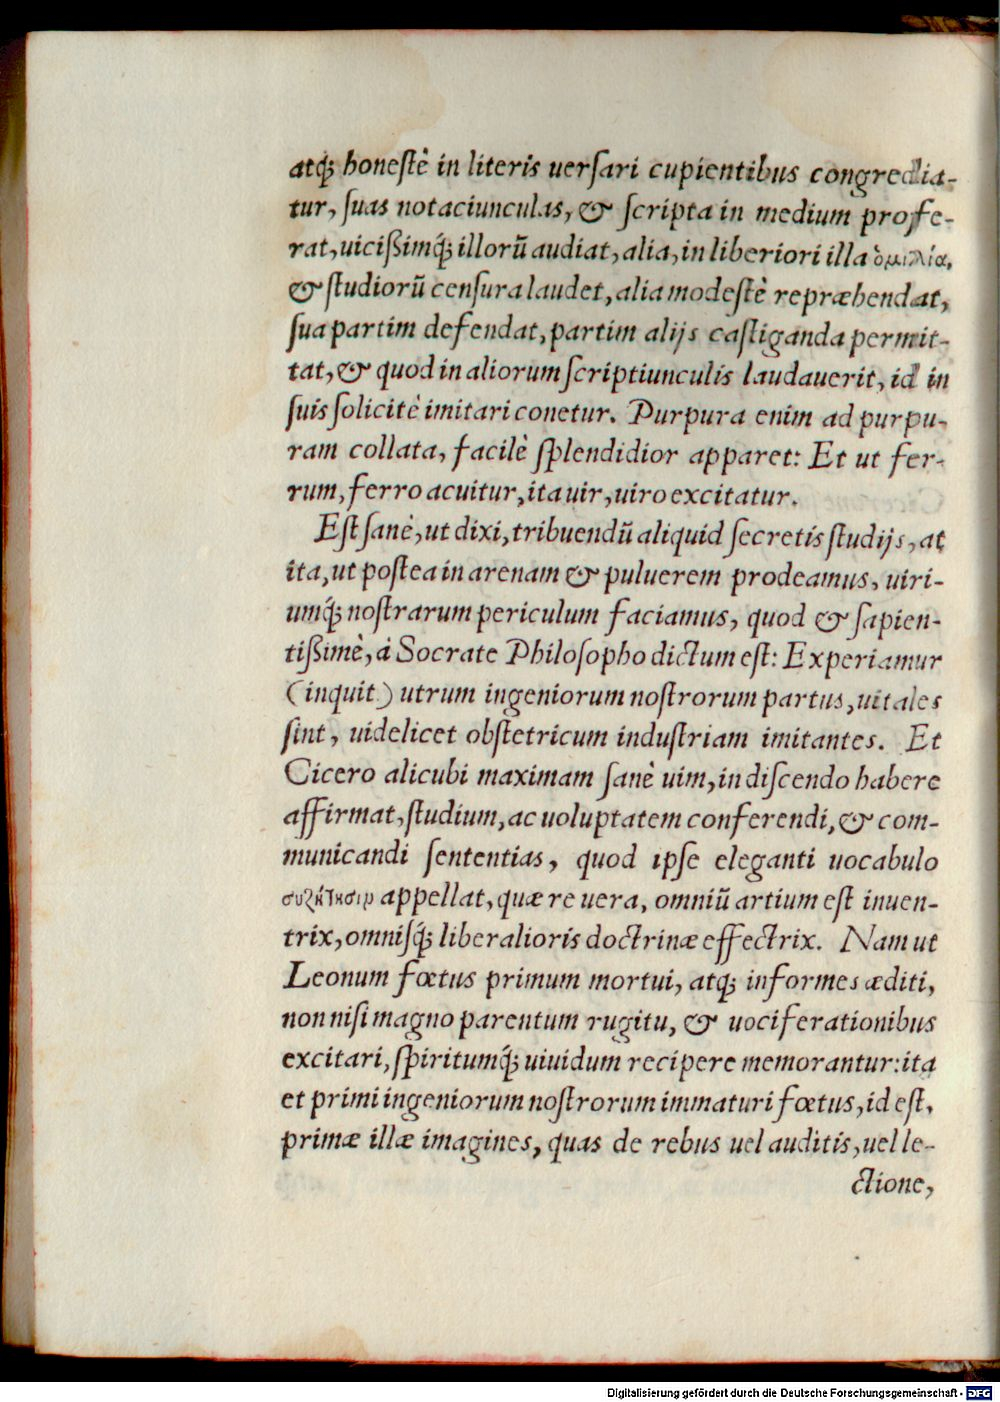 atq́; honestè in literis uersari cupientibus congredia-
tur, suas notaciunculas, & scripta in medium profe-
rat, uicißimq́; illorũ audiat, alia, in liberiori illa ὁμιλία,
& studiorũ censura laudet, alia modestè repræhendat,
sua partim defendat, partim alijs castiganda permit-
tat, & quod in aliorum scriptiunculis laudauerit, id in
suis solicitè imitari conetur. Purpura enim ad purpu-
ram collata, facilè splendidior apparet: Et ut fer-
rum, ferro acuitur, ita uir, uiro excitatur.
Est sanè, ut dixi, tribuendũ aliquid secretis studijs, at
ita, ut postea in arenam & puluerem prodeamus, uiri-
umq́; nostrarum periculum faciamus, quod & sapien-
tißimè, á Socrate Philosopho dictum est: Experiamur
(inquit) utrum ingeniorum nostrorum partus, uitales
sint, uidelicet obstetricum industriam imitantes. Et
Cicero alicubi maximam sanè uim, in discendo habere
affirmat, studium, ac uoluptatem conferendi, & com-
municandi sententias, quod ipse eleganti uocabulo
συζήτησιν appellat, quæ re uera, omniũ artium est inuen-
trix, omnisq́; liberalioris doctrinæ effectrix. Nam ut
Leonum fœtus primum mortui, atq; informes æditi,
non nisi magno parentum rugitu, & uociferationibus
excitari, spiritumq́; uiuidum recipere memorantur: ita
et primi ingeniorum nostrorum immaturi fœtus, id est,
primæ illæ imagines, quas de rebus uel auditis, uel le-
ctione,
Digitalisierung gefördert durch die Deutsche Forschungsgemeinschaft - DFG